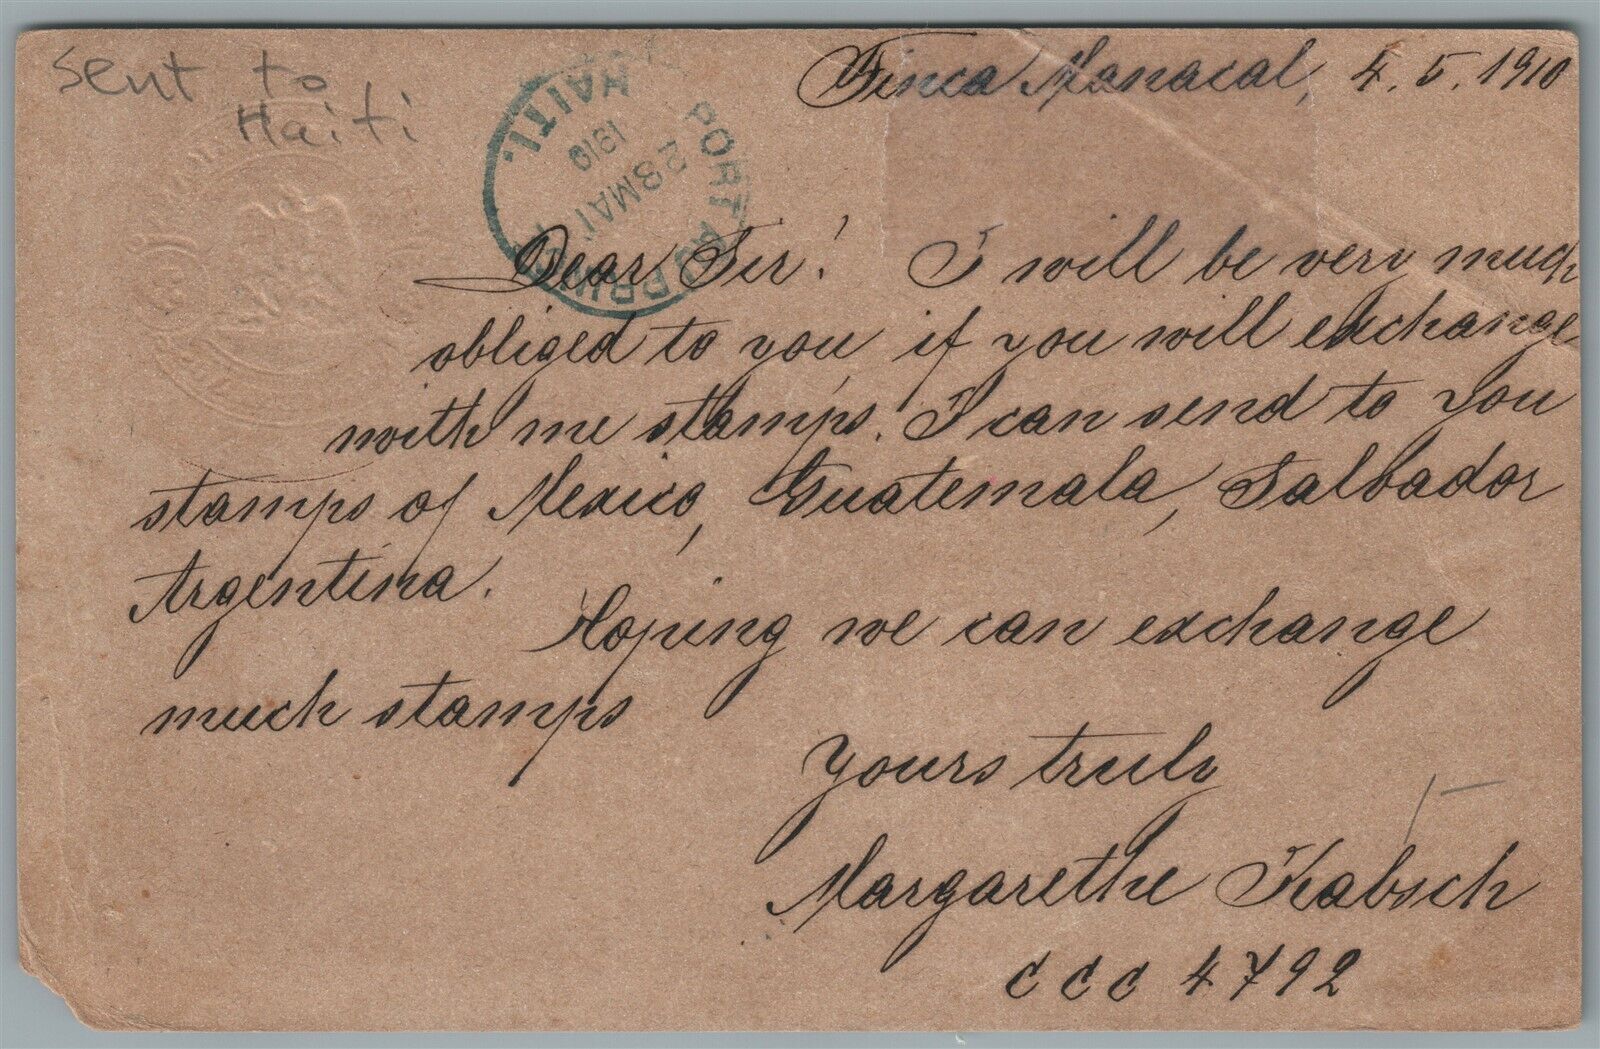 sent to
Haiti
PORT AU PRINCE
23 MAI
1910
HAITI.
Finca Manacal, 4.5.1910
Dear Sir! I will be very much
obliged to you, if you will exchange
with me stamps. I can send to you
stamps of Mexico, Guatemala, Salbador
Argentina.
Hoping we can exchange
much stamps
Yours truly
Margarethe Kabsch
CCC 4792